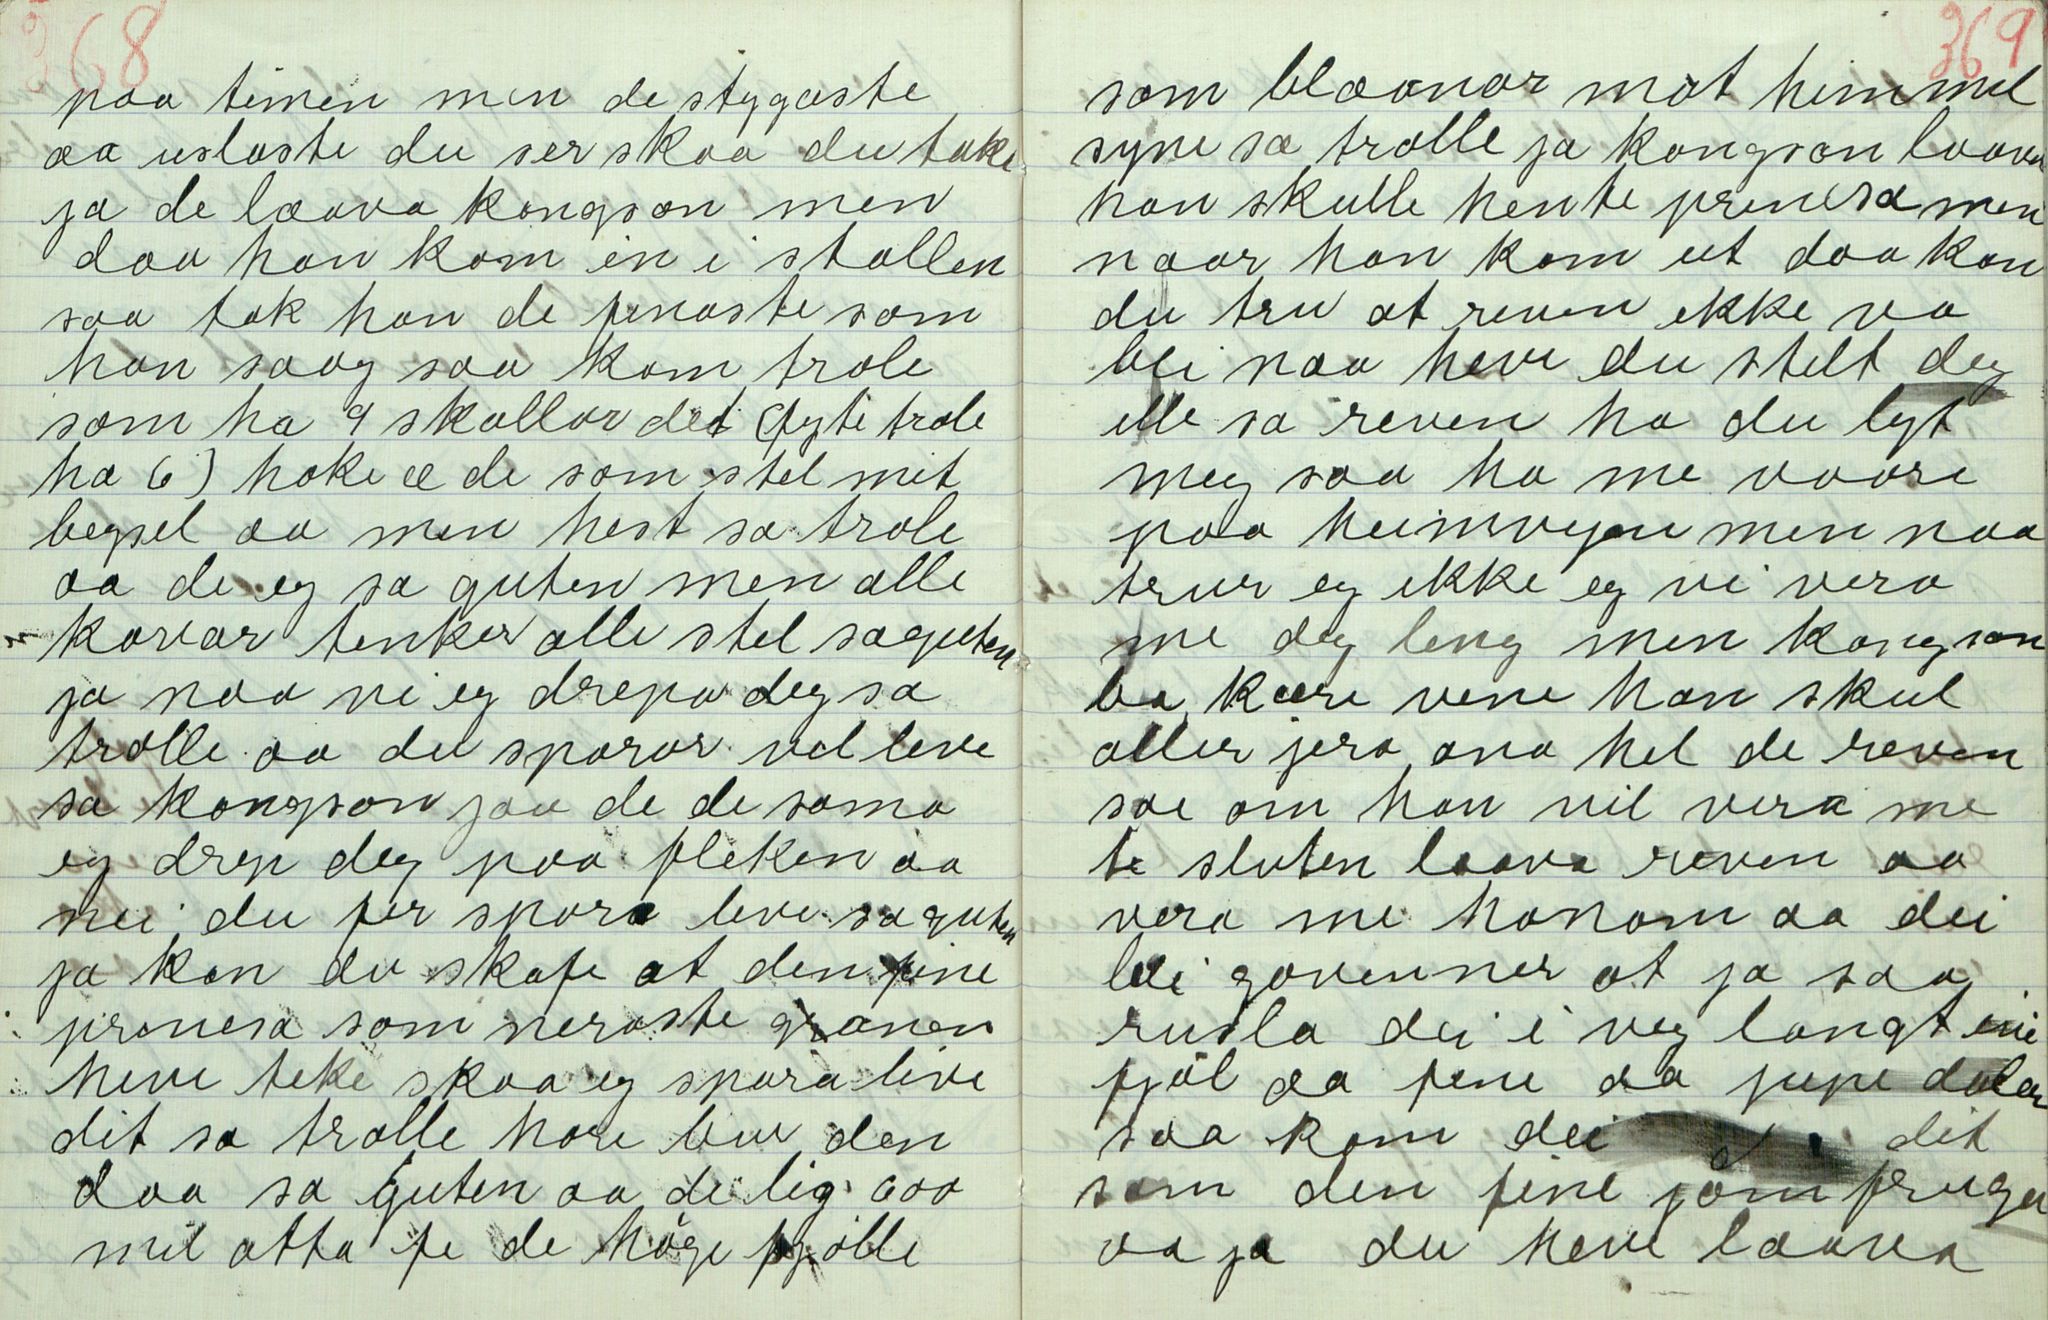 368
paa timen men de stygaste
aa uslaste du ser skaa du take
ja de læava kongson men
daa han kom in i stallen
saa tok han de finaste som
han saag saa kom trole
som ha 9 skallar det (fyste trole
ha 6) hoke æ de som stel mit
begsel aa men hest sa trole
aa de eg sa guten men alle
karar tenker alle stel sa guten
ja naa vi eg drepa deg sa
trolle aa du sparar vel leve
sa kongson jaa de de sama
eg drep deg paa fleken aa
nei du fer spara leve sa guten
ja kan du skafe at den fine
prinsesa som neraste granen
heve teke skaa eg spara live
dit sa trolle hore bur den
daa sa guten aa de lig 600
mil atta fe de høge fjølle
369
som blaanar mot himmel
syne sa trolle ja kongson laava
han skulle hente prinsesa men
naar han kom ut daa kan
du tru at reven ikke va
bli naa heve du stelt deg
ille sa reven ha du lyt
meg saa ha me vaare
paa heimvegen men naa
trur eg ikke eg vi vera
me deg leng men kongson
ba kære vene han skul
aller jera ana hel de reven
sae om han vil vera me
te sluten laava reven aa
vera me honom aa dei
blei govenner at ja saa
rusla dei i veg langt
fjøl aa fine aa jupe dalar
saa kom dei dit
som den fine jomfruga
va ja du heve læava